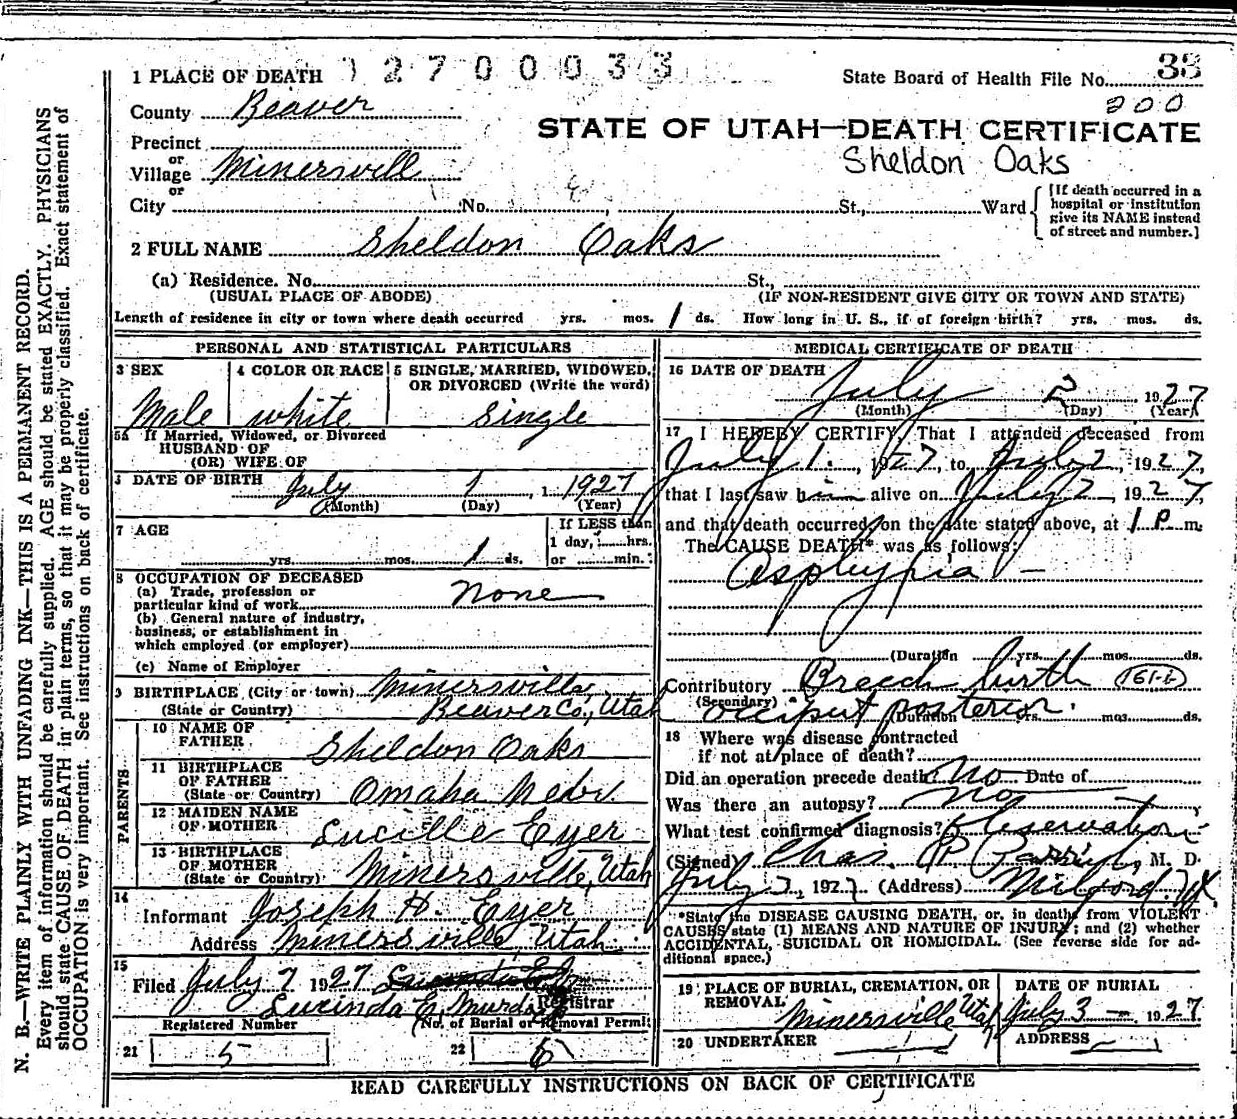 1 PLACE OF DEATH 1 2 7 0 0 0 3 3 State Board of Health File No. 33
County Beaver 200
STATE OF UTAH—DEATH CERTIFICATE
Precinct
or
Village Minersvill Sheldon Oaks
or
City No. St., Ward [If death occurred in a hospital or institution give its NAME instead of street and number.]
2 FULL NAME Sheldon Oaks
(a) Residence. No. St.,
(USUAL PLACE OF ABODE) (IF NON-RESIDENT GIVE CITY OR TOWN AND STATE)
Length of residence in city or town where death occurred yrs. mos. 1 ds. How long in U. S., if of foreign birth? yrs. mos. ds.
PERSONAL AND STATISTICAL PARTICULARS
3 SEX Male
4 COLOR OR RACE white
5 SINGLE, MARRIED, WIDOWED, OR DIVORCED (Write the word) single
5a If Married, Widowed, or Divorced
HUSBAND OF
(OR) WIFE OF
DATE OF BIRTH July 1, 1 1927
(Month) (Day) (Year)
7 AGE yrs. mos. 1 ds.
If LESS than
1 day, hrs.
or min.
8 OCCUPATION OF DECEASED
(a) Trade, profession or
particular kind of work None
(b) General nature of industry,
business, or establishment in
which employed (or employer)
(c) Name of Employer
9 BIRTHPLACE (City or town) Minersville,
(State or Country) Beaver Co., Utah
PARENTS
10 NAME OF
FATHER Sheldon Oaks
11 BIRTHPLACE
OF FATHER
(State or Country) Omaha Nebr.
12 MAIDEN NAME
OF MOTHER Lucille Eyer
13 BIRTHPLACE
OF MOTHER
(State or Country) Minersville, Utah
14
Informant Joseph H. Eyer
Address Minersville Utah.
15
Filed July 7 1927
Lucinda E. Murdo Registrar
Registered Number No. of Burial or Removal Permit
21 5 22 6
MEDICAL CERTIFICATE OF DEATH
16 DATE OF DEATH July 2 1927
(Month) (Day) (Year)
17 I HEREBY CERTIFY, That I attended deceased from
July 1., 1927, to July 2, 1927,
that I last saw him alive on July 2, 1927,
and that death occurred, on the date stated above, at 1 P m.
The CAUSE DEATH* was as follows:
Asphyxia —
(Duration yrs. mos. ds.
Contributory Breech birth 161-b
(Secondary) occiput posterior.
(Duration yrs. mos. ds.
18 Where was disease contracted
if not at place of death?
Did an operation precede death? No Date of
Was there an autopsy? No
What test confirmed diagnosis? Observation
(Signed) Chas. P. Parrish, M. D.
July 2, 1927 (Address) Milford. Ut.
*State the DISEASE CAUSING DEATH, or, in deaths from VIOLENT
CAUSES state (1) MEANS AND NATURE OF INJURY; and (2) whether
ACCIDENTAL, SUICIDAL OR HOMICIDAL. (See reverse side for ad-
ditional space.)
19 PLACE OF BURIAL, CREMATION, OR
REMOVAL Minersville Utah
DATE OF BURIAL
July 3 — 1927
20 UNDERTAKER
ADDRESS
READ CAREFULLY INSTRUCTIONS ON BACK OF CERTIFICATE
N. B.—WRITE PLAINLY WITH UNFADING INK—THIS IS A PERMANENT RECORD.
Every item of information should be carefully supplied. AGE should be stated EXACTLY. PHYSICIANS
should state CAUSE OF DEATH in plain terms, so that it may be properly classified. Exact statement of
OCCUPATION is very important. See instructions on back of certificate.